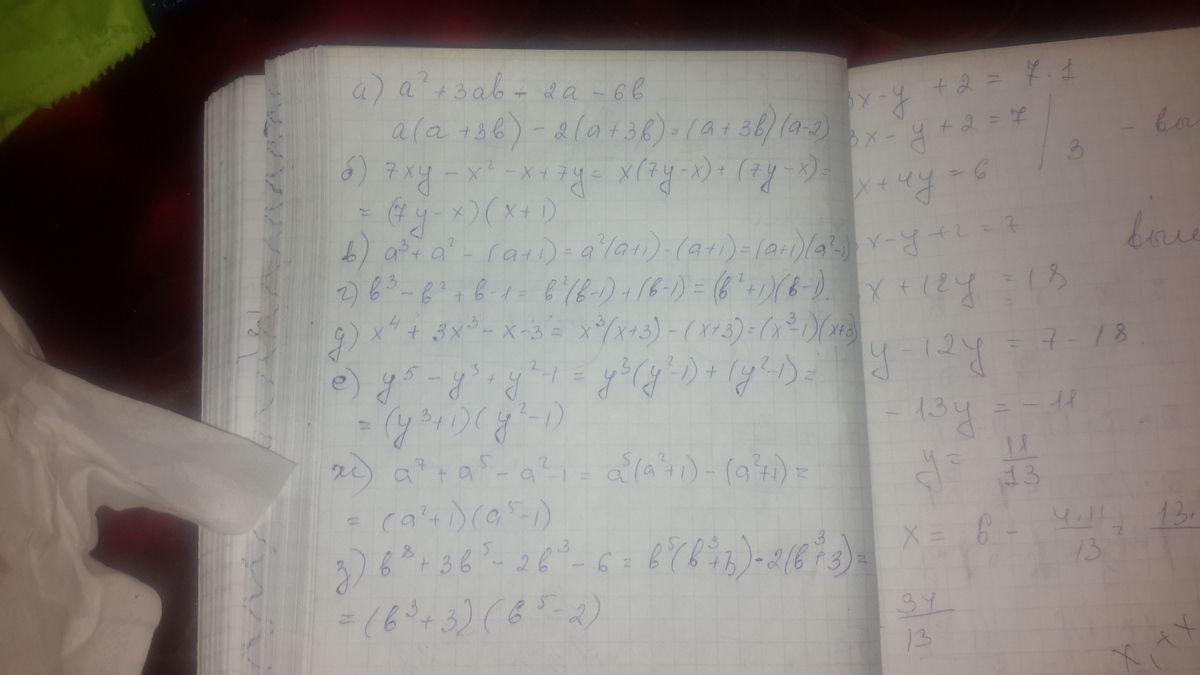 а) a² + 3ab - 2a - 6b
a(a + 3b) - 2(a + 3b) = (a + 3b)(a-2)
б) 7xy - x² - x + 7y = x(7y-x) + (7y-x) =
= (7y-x)(x+1)
в) a³ + a² - (a+1) = a²(a+1) - (a+1) = (a+1)(a²-1)
г) b³ - b² + b - 1 = b²(b-1) + (b-1) = (b²+1)(b-1).
д) x⁴ + 3x³ - x - 3 = x³(x+3) - (x+3) = (x³-1)(x+3)
е) y⁵ - y³ + y² - 1 = y³(y²-1) + (y²-1) =
= (y³+1)(y²-1)
ж) a⁷ + a⁵ - a² - 1 = a⁵(a²+1) - (a²+1) =
= (a²+1)(a⁵-1)
з) b⁸ + 3b⁵ - 2b³ - 6 = b⁵(b³+3) - 2(b³+3) =
= (b³+3)(b⁵-2)
3x - y + 2 = 7 · 1
3x - y + 2 = 7 | 3
x + 4y = 6
x - y + 2 = 7
x + 12y = 18
y - 12y = 7 - 18.
- 13y = - 11
y = 11/13
x = 6 - 4·11/13 =
34/13